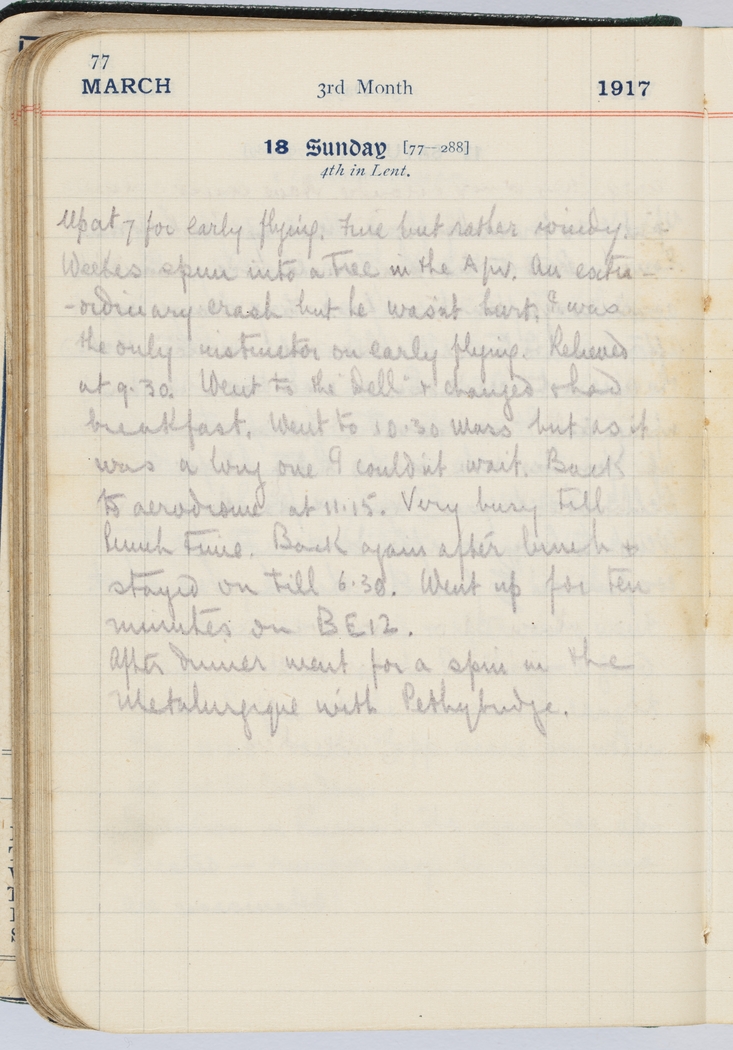 77
MARCH 3rd Month 1917
18 Sunday [77—288]
4th in Lent.
Up at 7 for early flying. Fine but rather windy.
spun into a tree in the Avro. An extra-
-ordinary crash but he wasnt hurt. I was
the only instructor on early flying. Relieved
at 9.30. Went to the "Dell" & changed & had
breakfast. Went to 10.30 Mass but as it
was a long one I couldnt wait. Back
to aerodrome at 11.15. Very busy till
lunch time. Back again after lunch &
stayed on till 6.30. Went up for ten
minutes on BE12.
After dinner went for a spin in the
Metalurgique with Pethybridge.